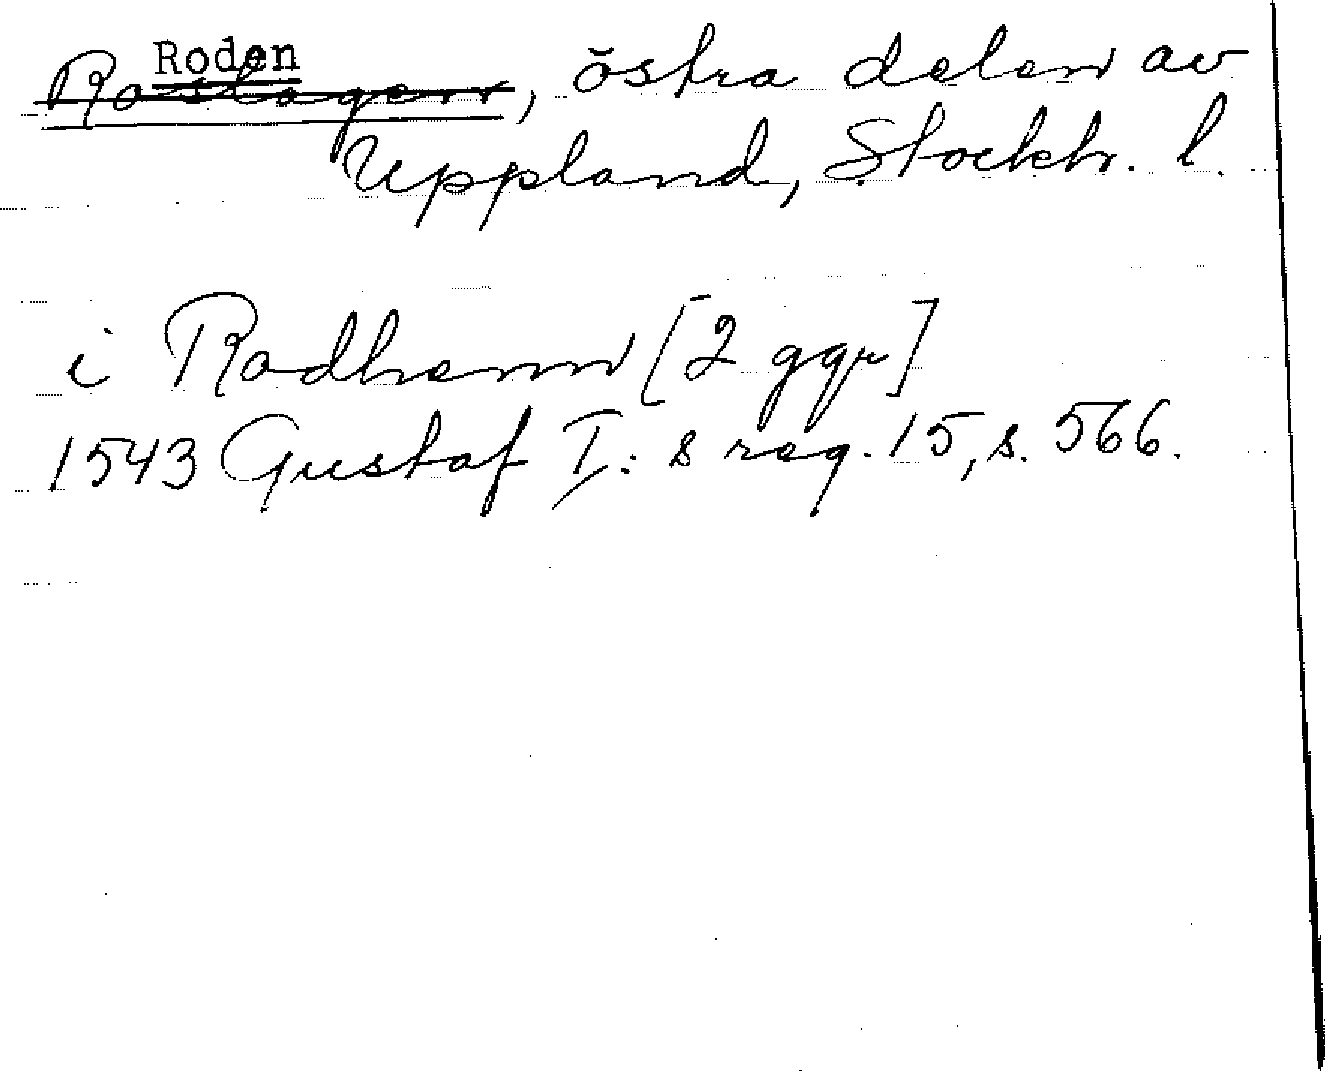 Roden
Roslagen, östra delen av
Uppland, Stockh. l.
i Rodhenn [2 ggr]
1543 Gustaf I: s reg. 15, s. 566.